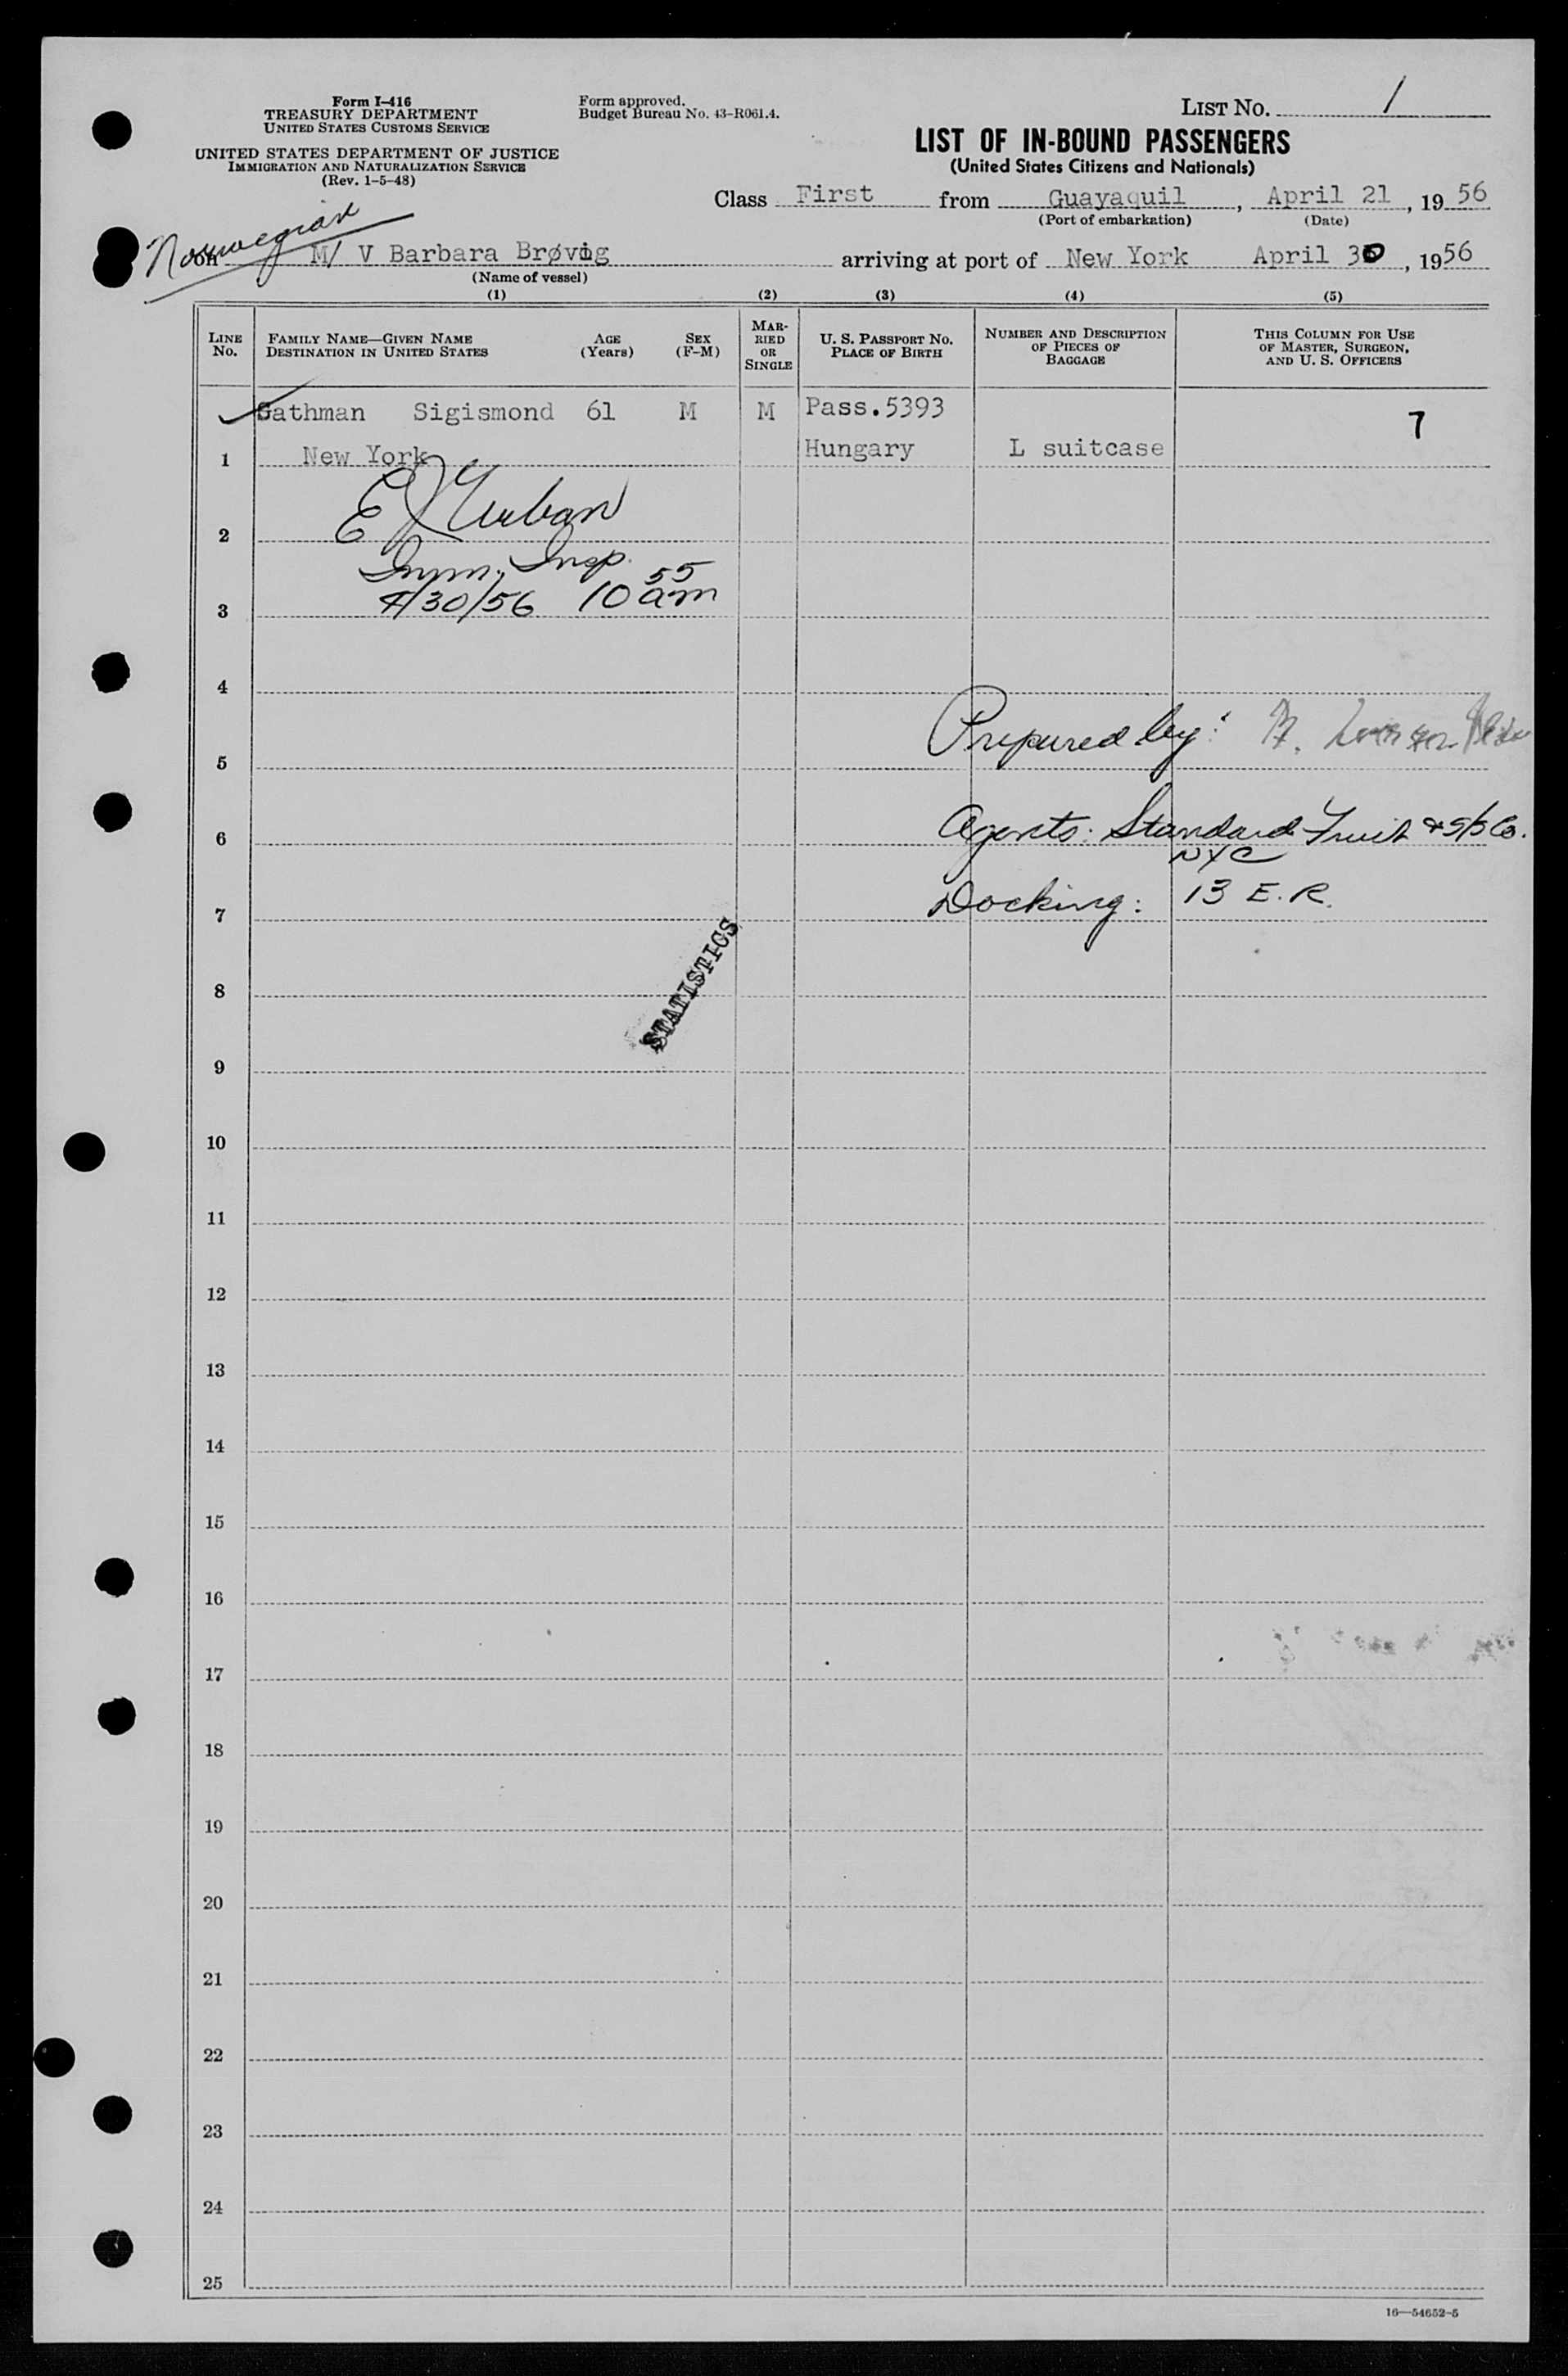 Form I-416
TREASURY DEPARTMENT
UNITED STATES CUSTOMS SERVICE
UNITED STATES DEPARTMENT OF JUSTICE
IMMIGRATION AND NATURALIZATION SERVICE
(Rev. 1-5-48)
Form approved.
Budget Bureau No. 43-R061.4.
LIST No. 1
LIST OF IN-BOUND PASSENGERS
(United States Citizens and Nationals)
Class First from Guayaquil, April 21, 1956
(Port of embarkation) (Date)
Norwegian
on M/ V Barbara Brøvig arriving at port of New York April 30, 1956
(Name of vessel)
(1) (2) (3) (4) (5)
LINE No.
FAMILY NAME—GIVEN NAME
DESTINATION IN UNITED STATES
AGE (Years)
SEX (F-M)
MARRIED OR SINGLE
U. S. PASSPORT No.
PLACE OF BIRTH
NUMBER AND DESCRIPTION OF PIECES OF BAGGAGE
THIS COLUMN FOR USE OF MASTER, SURGEON, AND U. S. OFFICERS
Sathman Sigismond 61 M M Pass.5393 7
1 New York Hungary L suitcase
2 E J Urban
Imm. Insp.
3 4/30/56 10 55 am
4
Prepared by:
5
6 Agents: Standard Fruit & S/S Co.
NYC
7 Docking: 13 E. R.
STATISTICS
8
9
10
11
12
13
14
15
16
17
18
19
20
21
22
23
24
25
16—54652-5